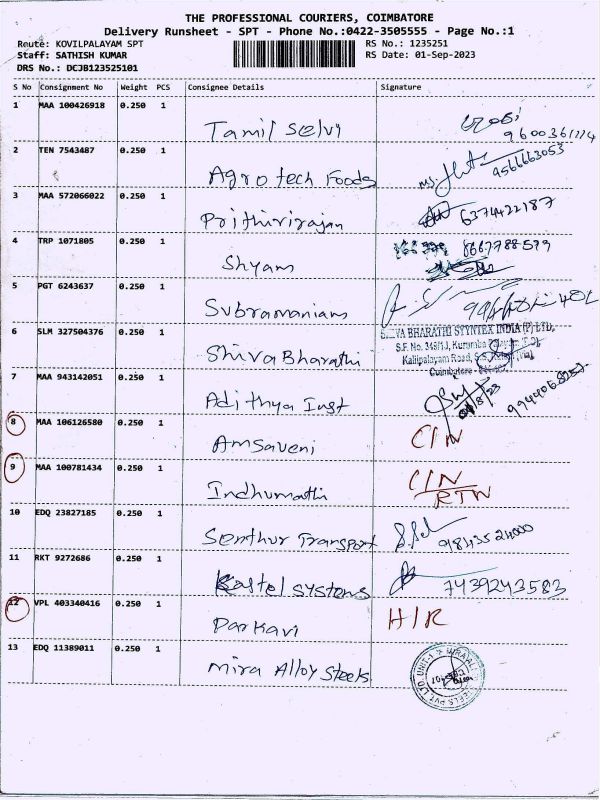 THE PROFESSIONAL COURIERS, COIMBATORE
Delivery Runsheet - SPT - Phone No.:0422-3505555 - Page No.:1
Route: KOVILPALAYAM SPT RS No.: 1235251
Staff: SATHISH KUMAR RS Date: 01-Sep-2023
DRS No.: DCJB123525101
S No Consignment No Weight PCS Consignee Details Signature
1 MAA 100426918 0.250 1 Tamil Selvi
2 TEN 7543487 0.250 1 Agro tech Foods 9566663053
3 MAA 572066022 0.250 1 Prithivirajan 6374422187
4 TRP 1071805 0.250 1 Shyam 8667788579
5 PGT 6243637 0.250 1 Subramaniam
6 SLM 327504376 0.250 1 Shiva Bharathi SHIVA BHARATHI SYNTEX INDIA (P) LTD,
S.F. No. 349/1J,
Kalipalayam Road,
Coimbatore
7 MAA 943142051 0.250 1 Adithya Inst
8 MAA 106126580 0.250 1 Amsaveni C/N
9 MAA 100781434 0.250 1 Indhumathi C/N
RTN
10 EDQ 23827185 0.250 1 Senthur Transport 9843524000
11 RKT 9272686 0.250 1 Kastel Systems 7439243583
12 VPL 403340416 0.250 1 Parkavi H/R
13 EDQ 11389011 0.250 1 Mira Alloy Steels